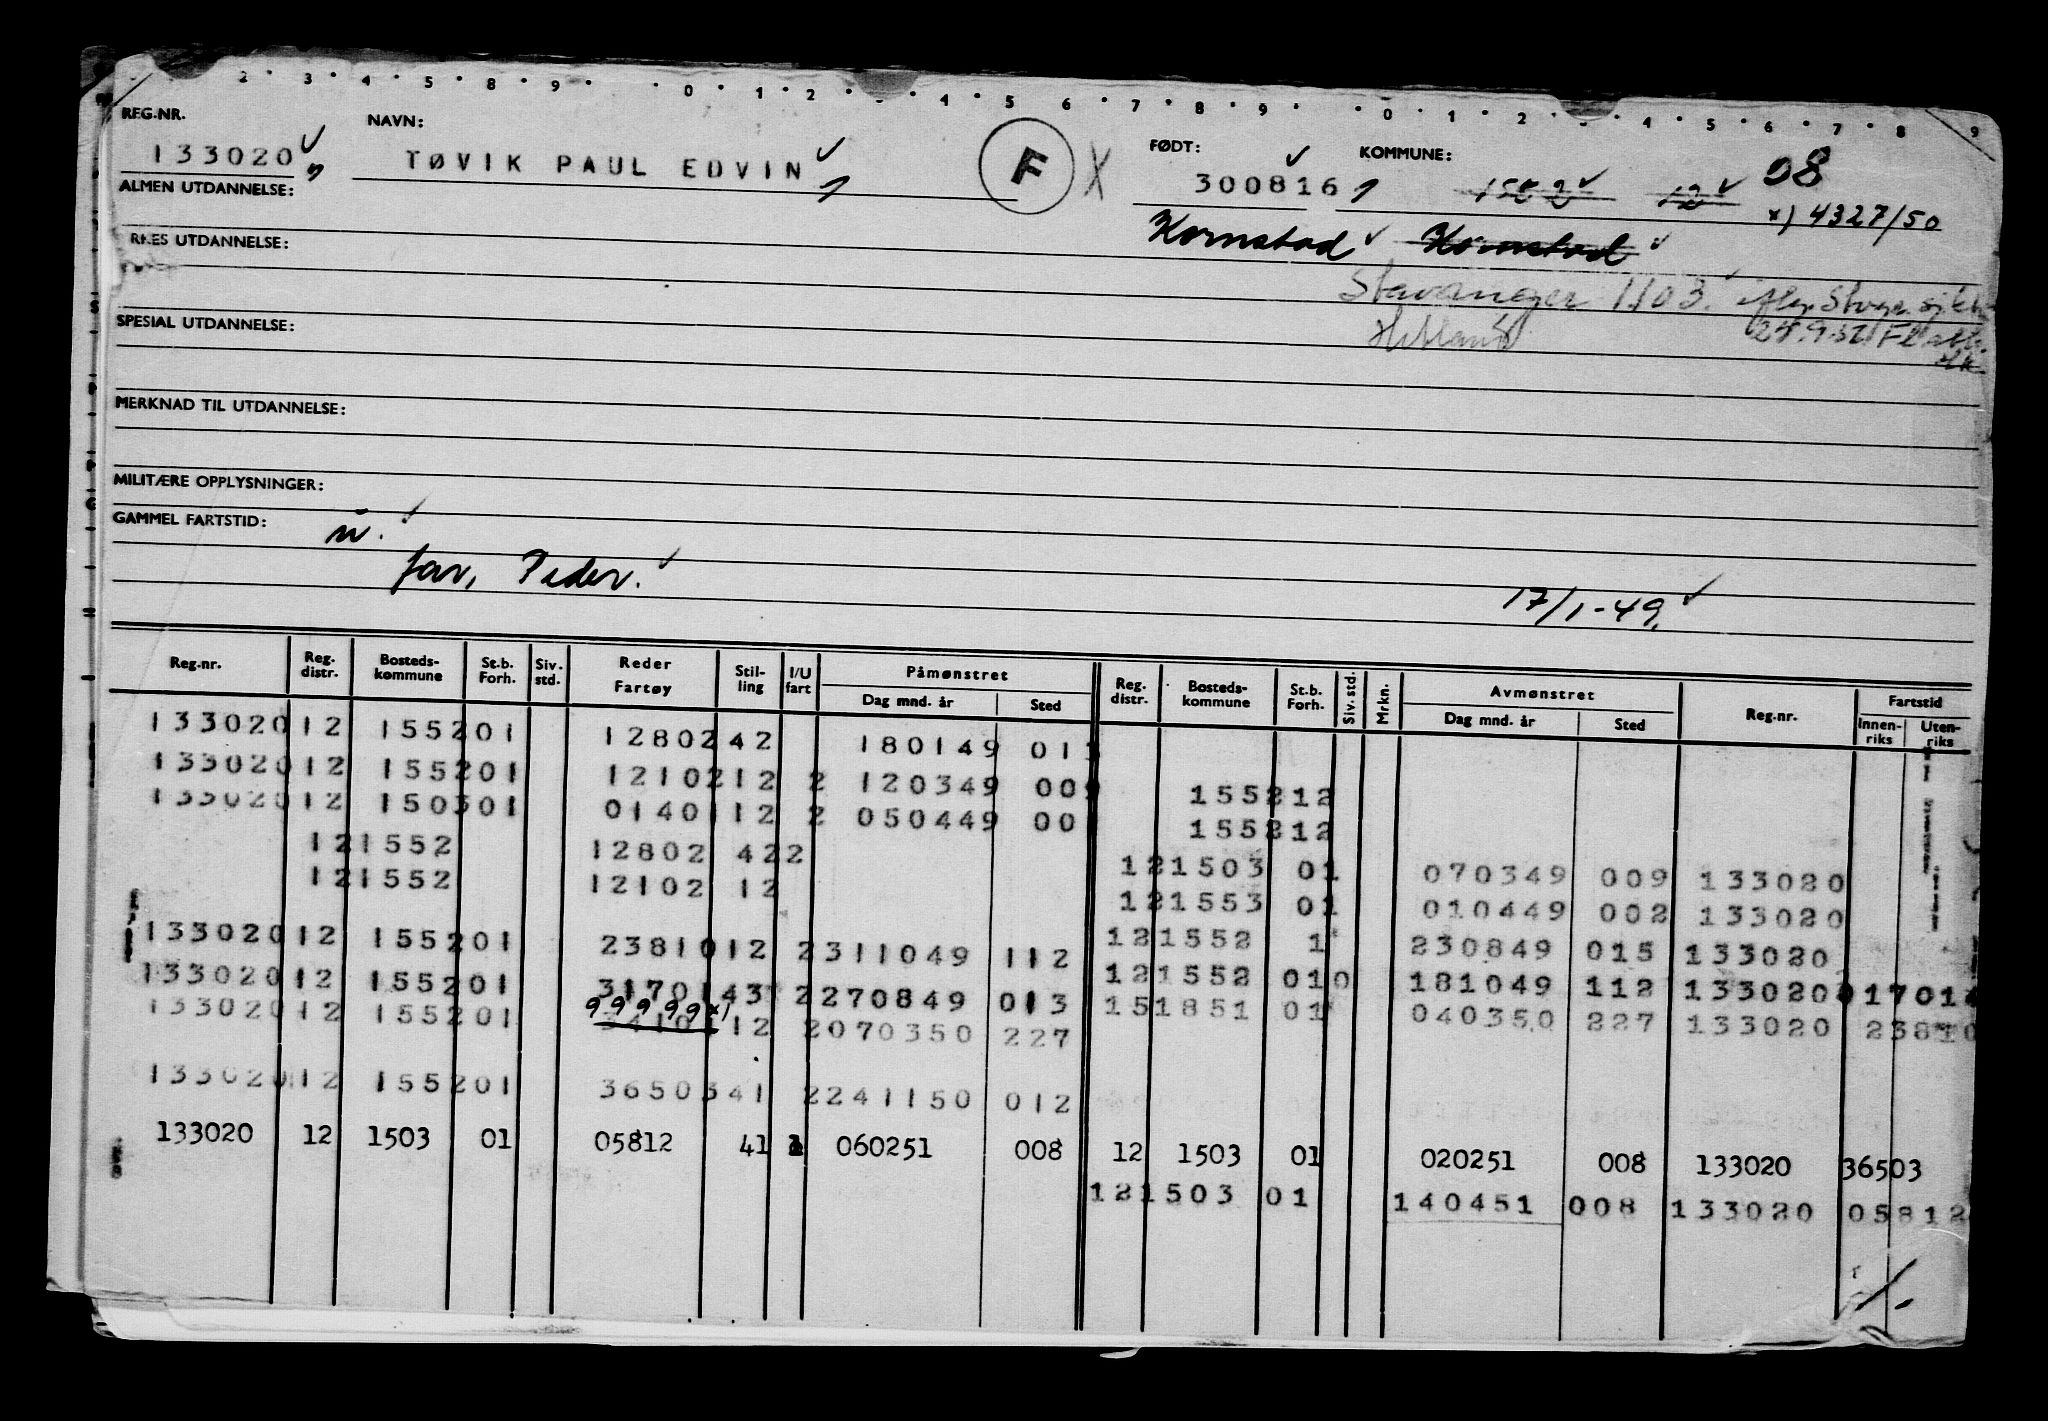 2 · 3 · 4 · 5 · 8 · 9 · · 0 · 1 · 2 · · 4 · 5 · 6 · 7 · 8 · 9 · · 0 · 1 · 2 · · 4 · 5 · 6 · 7 · 8 · 9
REG.NR. NAVN: FØDT: KOMMUNE: 08
133020 TØVIK PAUL EDVIN F X 300816 12
ALMEN UTDANNELSE: x) 4327/50
Kornstad Kornstad
YRKES UTDANNELSE:
Stavanger 1103.
SPESIAL UTDANNELSE: 24.9.52
MERKNAD TIL UTDANNELSE:
MILITÆRE OPPLYSNINGER:
GAMMEL FARTSTID:
far, Peder.
17/1-49.
Reg.nr. Reg. distr. Bosteds-kommune St.b. Forh. Siv. std. Reder Fartøy Stil-ling I/U fart Påmønstret Dag mnd. år Sted Reg. distr. Bosteds-kommune St.b. Forh. Siv. std. Mrkn. Avmønstret Dag mnd. år Sted Reg.nr. Fartstid Innen-riks Uten-riks
133020 12 1552 01 12802 42 180149 013
133020 12 1552 01 12102 12 2 120349 009 1552 12
133020 12 1503 01 01401 12 2 050449 00 1552 12
12 1552 12802 42 2 12 1503 01 070349 009 133020
12 1552 12102 12 12 1553 01 010449 002 133020
133020 12 1552 01 23810 12 2 311049 112 12 1552 1 230849 015 133020
133020 12 1552 01 31701 43 2 270849 013 12 1552 010 181049 112 133020 01701
99999 x)
133020 12 1552 01 34101 12 2 070350 227 15 1851 01 040350 227 133020 23810
133020 12 1552 01 36503 41 2 241150 012
133020 12 1503 01 05812 41 060251 008 12 1503 01 020251 008 133020 36503
12 1503 01 140451 008 133020 05812